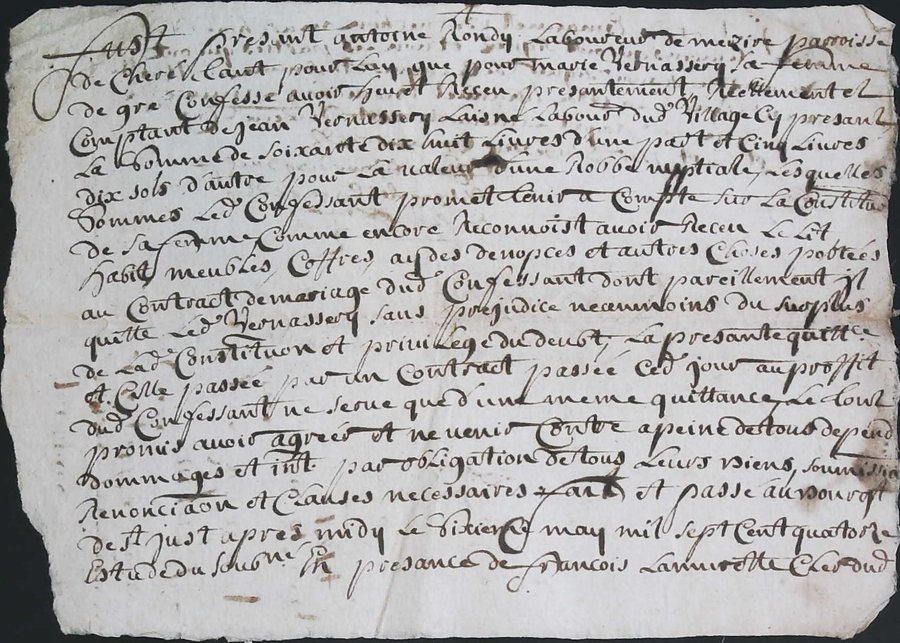 fust presant antoine Rondy Laboureur de mezire parroisse
de Chere tant pour Luy que pour marie Vernassery sa femme
de gré Confesse avoir heu et Receu presantement Reellement et
Comptant de Jean Vernassery Laisné Labour dud Village Cy presant
La Somme de soixante dix huit Livres d'une part et Cinq Livres
dix sols d'autre pour La valeur d'une Robbe nuptiale, Lesquelles
Sommes Led Confessant promet tenir a Compte sur La Constituon
de sa femme Comme encore Reconnoist avoir Receu Le Lit
habit, meubles, Coffres, de nopces et autres Choses portées
au Contract de mariage dud Confessant dont pareillement il
quitte Led Vernassery sans prejudice neanmoins du surplus
de Lad Constituon et privilege du deubt, La presante quittce
et Celle passée par un Contract passée Ced jour au proffit
dud Confessant ne serve que d'une meme quittance, Le tout
promis avoir agreés et ne venir Contre a peine de tous depend
dommages et int par obligation de tous Leurs biens, soumission
Renonciaon et Clauses necessaires fait et passé au bourg
de st just apres midy Le Sixieme may mil sept Cent quatorze
Estude du soubne En presance de françois Clerc dud